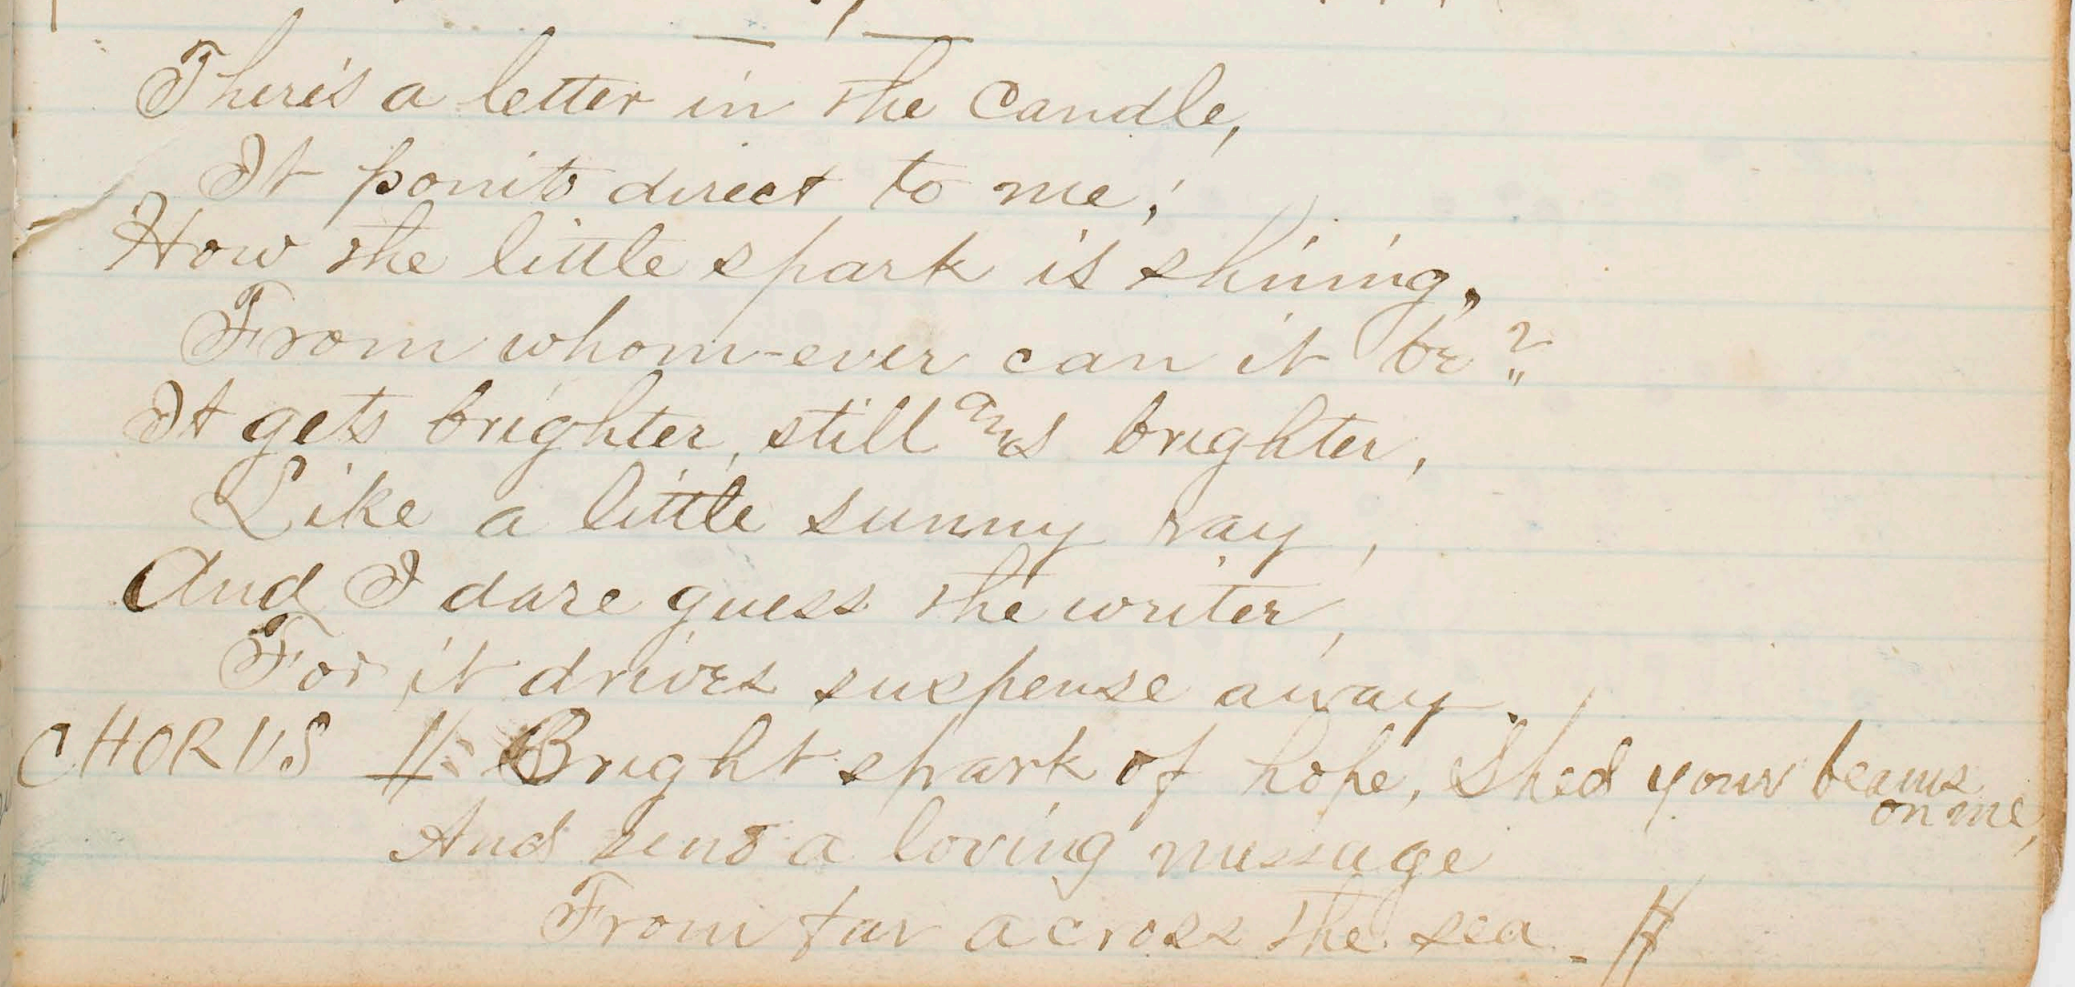 There's a letter in the Candle,
It ponits direct to me;
How the little spark is shining,
From whom-ever can it be?
It gets brighter, still and brighter,
Like a little sunny ray,
And I dare guess the writer,
For it drives suspense away.
CHORUS Bright spark of hope, Shed your beams
on me,
And send a loving message
From far across the sea.